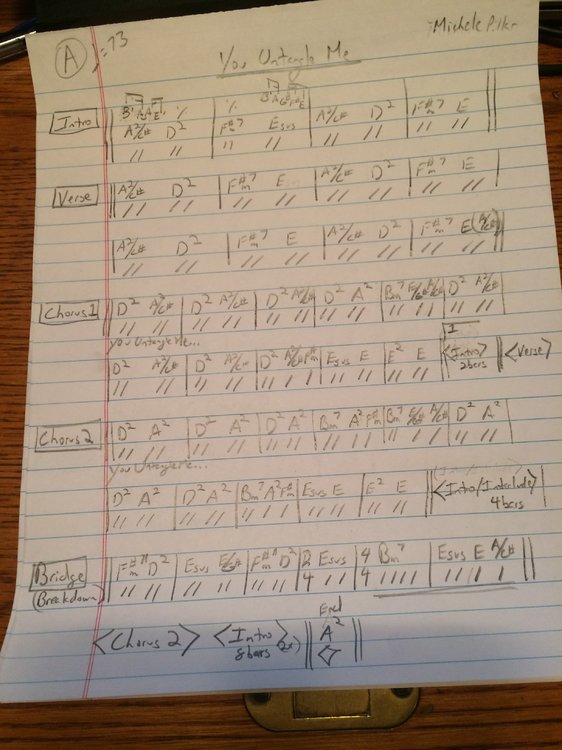 Michele Pilkr
A ♩=73
You Untangle Me
Intro
A²/C# D² | F#m⁷ Esus | A²/C# D² | F#m⁷ E
// // | // // | // // | // //
Verse
A²/C# D² | F#m⁷ E | A²/C# D² | F#m⁷ E
// // | // // | // // | // //
A²/C# D² | F#m⁷ E | A²/C# D² | F#m⁷ E (A/C#)
// // | // // | // // | // //
Chorus 1
D² A²/C# | D² A²/C# | D² A²/C# | D² A² | Bm⁷ E/G# A/C# | D² A²/C#
// // | // // | // // | // // | // // | // //
You Untangle Me...
1
D² A²/C# | D² A²/C# | D² A²/C# F#m | Esus E | E² E | <Intro> 2bars | <Verse>
// // | // // | // // | // // | // //
Chorus 2
D² A² | D² A² | D² A² | Bm⁷ A² F#m | Bm⁷ E/G# A/C# | D² A²
// // | // // | // // | // // | // // | // //
You Untangle Me...
D² A² | D² A² | Bm⁷ A² F#m | Esus E | E² E | <Intro/Interlude> 4bars
// // | // // | // // | // // | // //
Bridge
(Breakdown)
F#m¹¹ D² | Esus E/G# | F#m¹¹ D² | 2/4 Esus | 4/4 Bm⁷ | Esus E A/C#
// // | // // | // // | // | //// | // / /
End
<Chorus 2> <Intro> 8bars (2x) A²